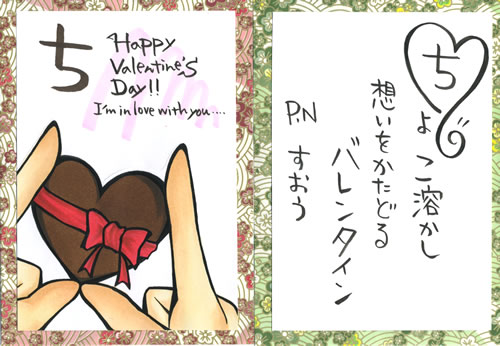 ち
Happy
Valentine's
Day!!
I'm in love with you....
ちょこ溶かし
想いをかたどる
バレンタイン
P.N すおう